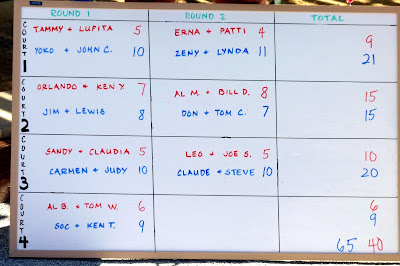 ROUND 1 ROUND 2 TOTAL
COURT 1
TAMMY + LUPITA 5 ERNA + PATTI 4 9
YOKO + JOHN C. 10 ZENY + LYNDA 11 21
COURT 2
ORLANDO + KEN Y. 7 AL M. + BILL D. 8 15
JIM + LEWIS 8 DON + TOM C. 7 15
COURT 3
SANDY + CLAUDIA 5 LEO + JOE S. 5 10
CARMEN + JUDY 10 CLAUDE + STEVE 10 20
COURT 4
AL B. + TOM W. 6 6
SOC + KEN T. 9 9
65 40